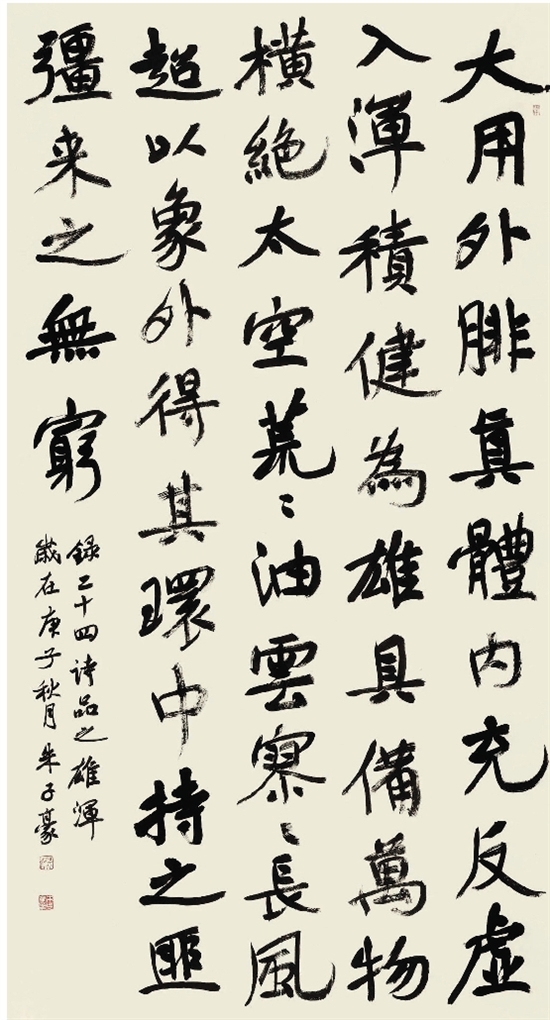 大用外腓真體内充反虛
入渾積健為雄具備萬物
橫絶太空荒〻油雲寥〻長風
超以象外得其環中持之匪
彊来之無窮
録二十四诗品之雄渾
歲在庚子秋月朱子豪